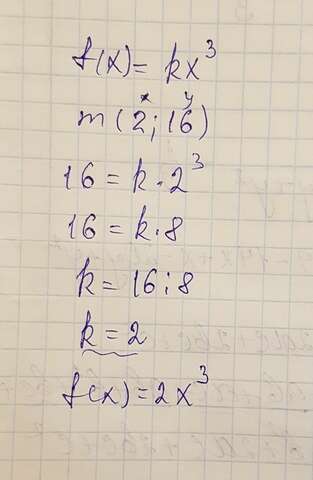 f(x) = kx³
x y
m (2; 16)
16 = k · 2³
16 = k · 8
k = 16 : 8
k = 2
f(x) = 2x³